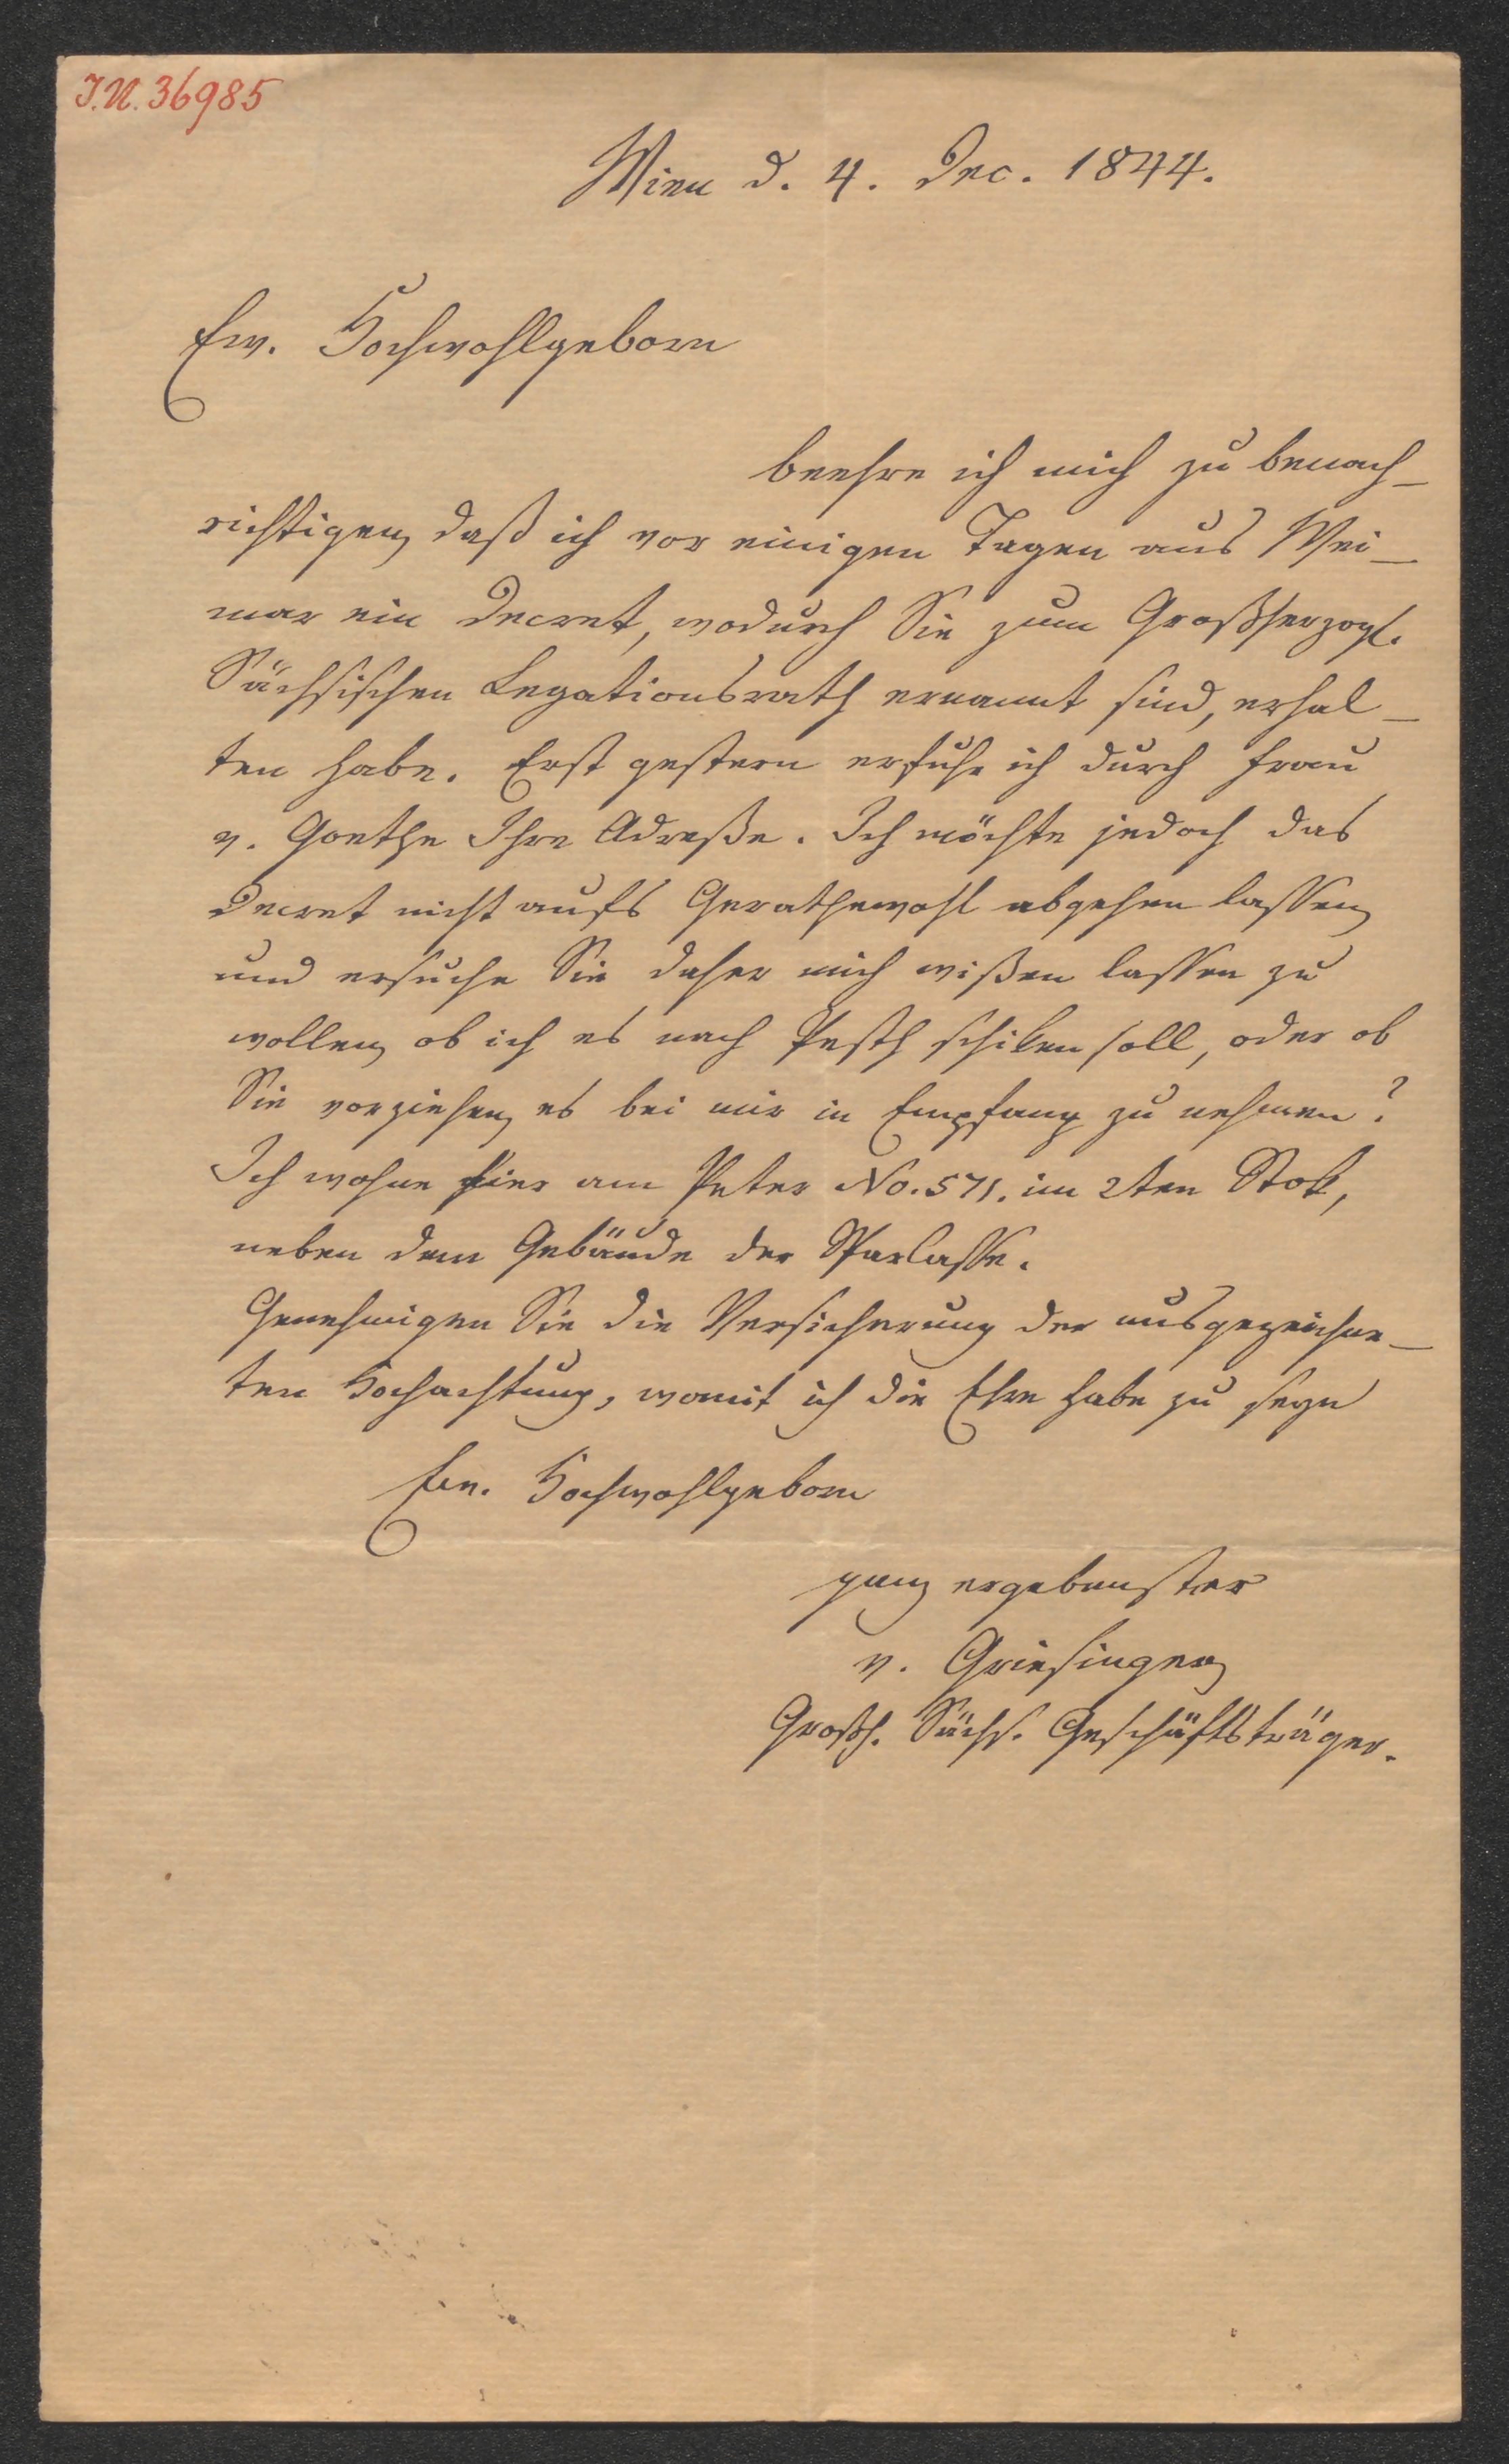 I.N. 36985
Wien d. 4. Dec. 1844.
Ew. Hochwohlgeborn
beehre ich mich zu benach-
richtigen, daß ich vor einigen Tagen aus Wei-
mar ein Decret, wodurch Sie zum Großherzogl.
Sächsischen Legationsrath ernannt sind, erhal-
ten habe. Erst gestern erfuhr ich durch Frau
v. Goethe Ihre Adreße. Ich möchte jedoch das
Decret nicht aufs Gerathewohl abgehen lassen,
und ersuche Sie daher mich wißen lassen zu
wollen, ob ich es nach Pesth schiken soll, oder ob
Sie vorziehen, es bei mir in Empfang zu nehmen?
Ich wohne hier am Peter No. 571. im 2ten Stok,
neben dem Gebäude der Sparkasse.
Genehmigen Sie die Versicherung der ausgezeichne-
ten Hochachtung, womit ich die Ehre habe zu seyn
Ew. Hochwohlgeborn
ganz ergebenster
v. Griesinger,
Großh. Sächs. Geschäftsträger.